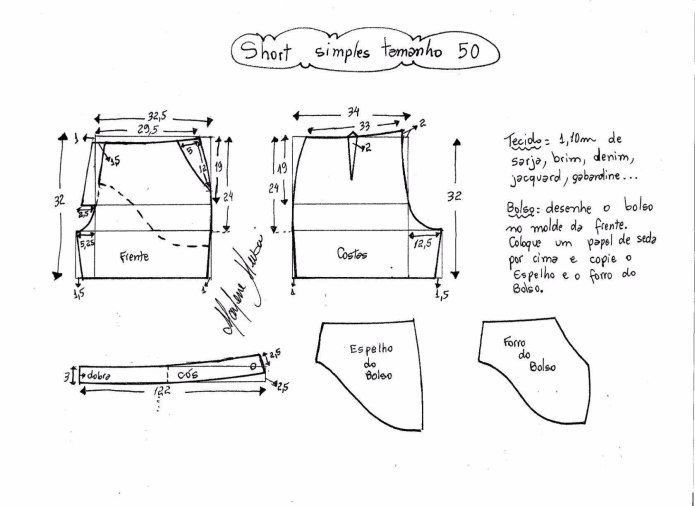 Short simples tamanho 50
32,5
29,5
1
1,5
5
12
19
24
32
2,5
5,25
Frente
1,5
1
Marlene Mukai
34
33
2
2
19
24
32
12,5
Costas
1
1,5
Tecido: 1,10m de
sarja, brim, denim,
jacquard, gabardine...
Bolso: desenhe o bolso
no molde da frente.
Coloque um papel de seda
por cima e copie o
Espelho e o forro do
Bolso.
3
dobra
cós
2,5
2,5
122
Espelho
do
Bolso
Forro
do
Bolso